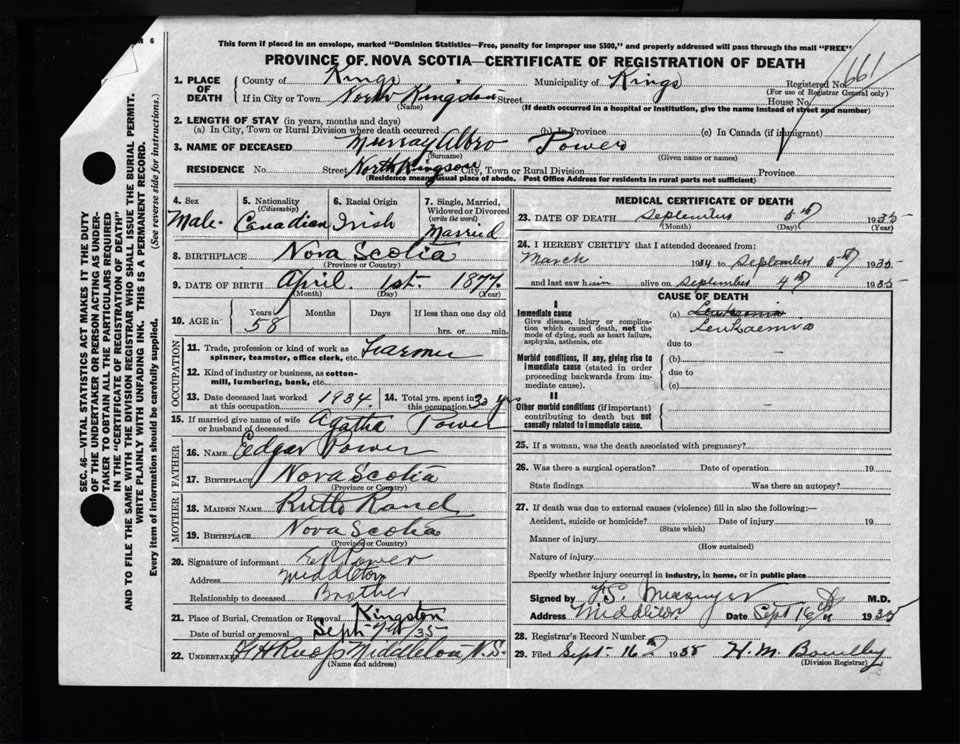 This form if placed in an envelope, marked "Dominion Statistics—Free, penalty for improper use $300," and properly addressed will pass through the mail "FREE"
PROVINCE OF NOVA SCOTIA—CERTIFICATE OF REGISTRATION OF DEATH
1. PLACE OF DEATH County of Kings Municipality of Kings Registered No. 661
(For use of Registrar General only)
If in City or Town North Kingston Street House No.
(Name) (If death occurred in a hospital or institution, give the name instead of street and number)
2. LENGTH OF STAY (in years, months and days)
(a) In City, Town or Rural Division where death occurred (b) in Province (c) In Canada (if immigrant)
3. NAME OF DECEASED Murray Albro Power
(Surname) (Given name or names)
RESIDENCE No. Street North Kingston City, Town or Rural Division Province
(Residence means usual place of abode. Post Office Address for residents in rural parts not sufficient)
4. Sex 5. Nationality 6. Racial Origin 7. Single, Married, Widowed or Divorced
(Citizenship) (write the word)
Male. Canadian Irish Married
8. BIRTHPLACE Nova Scotia
(Province or Country)
9. DATE OF BIRTH April 1st. 1877.
(Month) (Day) (Year)
10. AGE in Years Months Days If less than one day
58 hrs. or min.
OCCUPATION
11. Trade, profession or kind of work as spinner, teamster, office clerk, etc. Farmer
12. Kind of industry or business, as cotton-mill, lumbering, bank, etc.
13. Date deceased last worked at this occupation 1934. 14. Total yrs. spent in this occupation 30 yrs
15. If married give name of wife or husband of deceased Agatha Power
FATHER
16. NAME Edgar Power
17. BIRTHPLACE Nova Scotia
(Province or Country)
MOTHER
18. MAIDEN NAME Ruth Rand
19. BIRTHPLACE Nova Scotia
(Province or Country)
20. Signature of informant Power
Address Middleton
Relationship to deceased Brother
21. Place of Burial, Cremation or Removal Kingston
Date of burial or removal Sept 7th/35
22. UNDERTAKER Middleton N.S.
(Name and address)
MEDICAL CERTIFICATE OF DEATH
23. DATE OF DEATH September 5th 1935
(Month) (Day) (Year)
24. I HEREBY CERTIFY that I attended deceased from:
March 1934 to September 5th 1935
and last saw him alive on September 4th 1935
CAUSE OF DEATH
I
Immediate cause
Give disease, injury or complication which caused death, not the mode of dying, such as heart failure, asphyxia, asthenia, etc.
(a) Leukaemia
Leukaemia
due to
Morbid conditions, if any, giving rise to immediate cause (stated in order proceeding backwards from immediate cause).
(b)
due to
(c)
II
Other morbid conditions (if important) contributing to death but not causally related to immediate cause.
25. If a woman, was the death associated with pregnancy?
26. Was there a surgical operation? Date of operation 19
State findings Was there an autopsy?
27. If death was due to external causes (violence) fill in also the following:—
Accident, suicide or homicide? Date of injury 19
(State which)
Manner of injury
(How sustained)
Nature of injury
Specify whether injury occurred in industry, in home, or in public place
Signed by Messenger M.D.
Address Middleton Date Sept 16th 1935
28. Registrar's Record Number 2
29. Filed Sept. 16 1935 H. M.
(Division Registrar)
SEC. 46—VITAL STATISTICS ACT MAKES IT THE DUTY
OF THE UNDERTAKER OR PERSON ACTING AS UNDER-
TAKER TO OBTAIN ALL THE PARTICULARS REQUIRED
IN THE "CERTIFICATE OF REGISTRATION OF DEATH"
AND TO FILE THE SAME WITH THE DIVISION REGISTRAR WHO SHALL ISSUE THE BURIAL PERMIT.
WRITE PLAINLY WITH UNFADING INK. THIS IS A PERMANENT RECORD.
Every item of information should be carefully supplied. (See reverse side for instructions.)